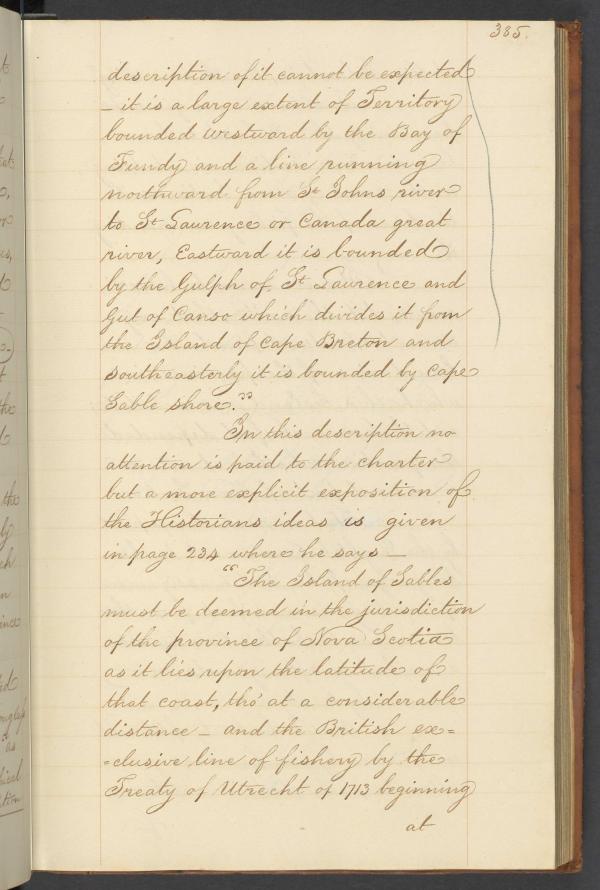 385.
description of it cannot be expected
– it is a large extent of Territory
bounded westward by the Bay of
Fundy and a line running
northward from St Johns river
to St Laurence or Canada great
river, Eastward it is bounded
by the Gulph of St Laurence and
Gut of Canso which divides it from
the Island of Cape Breton and
southeasterly it is bounded by Cape
Sable shore."
In this description no
attention is paid to the charter
but a more explicit exposition of
the Historians ideas is given
in page 234 where he says –
"The Island of Sables
must be deemed in the jurisdiction
of the province of Nova Scotia
as it lies upon the latitude of
that coast, tho' at a considerable
distance – and the British ex=
=clusive line of fishery by the
Treaty of Utrecht of 1713 beginning
at